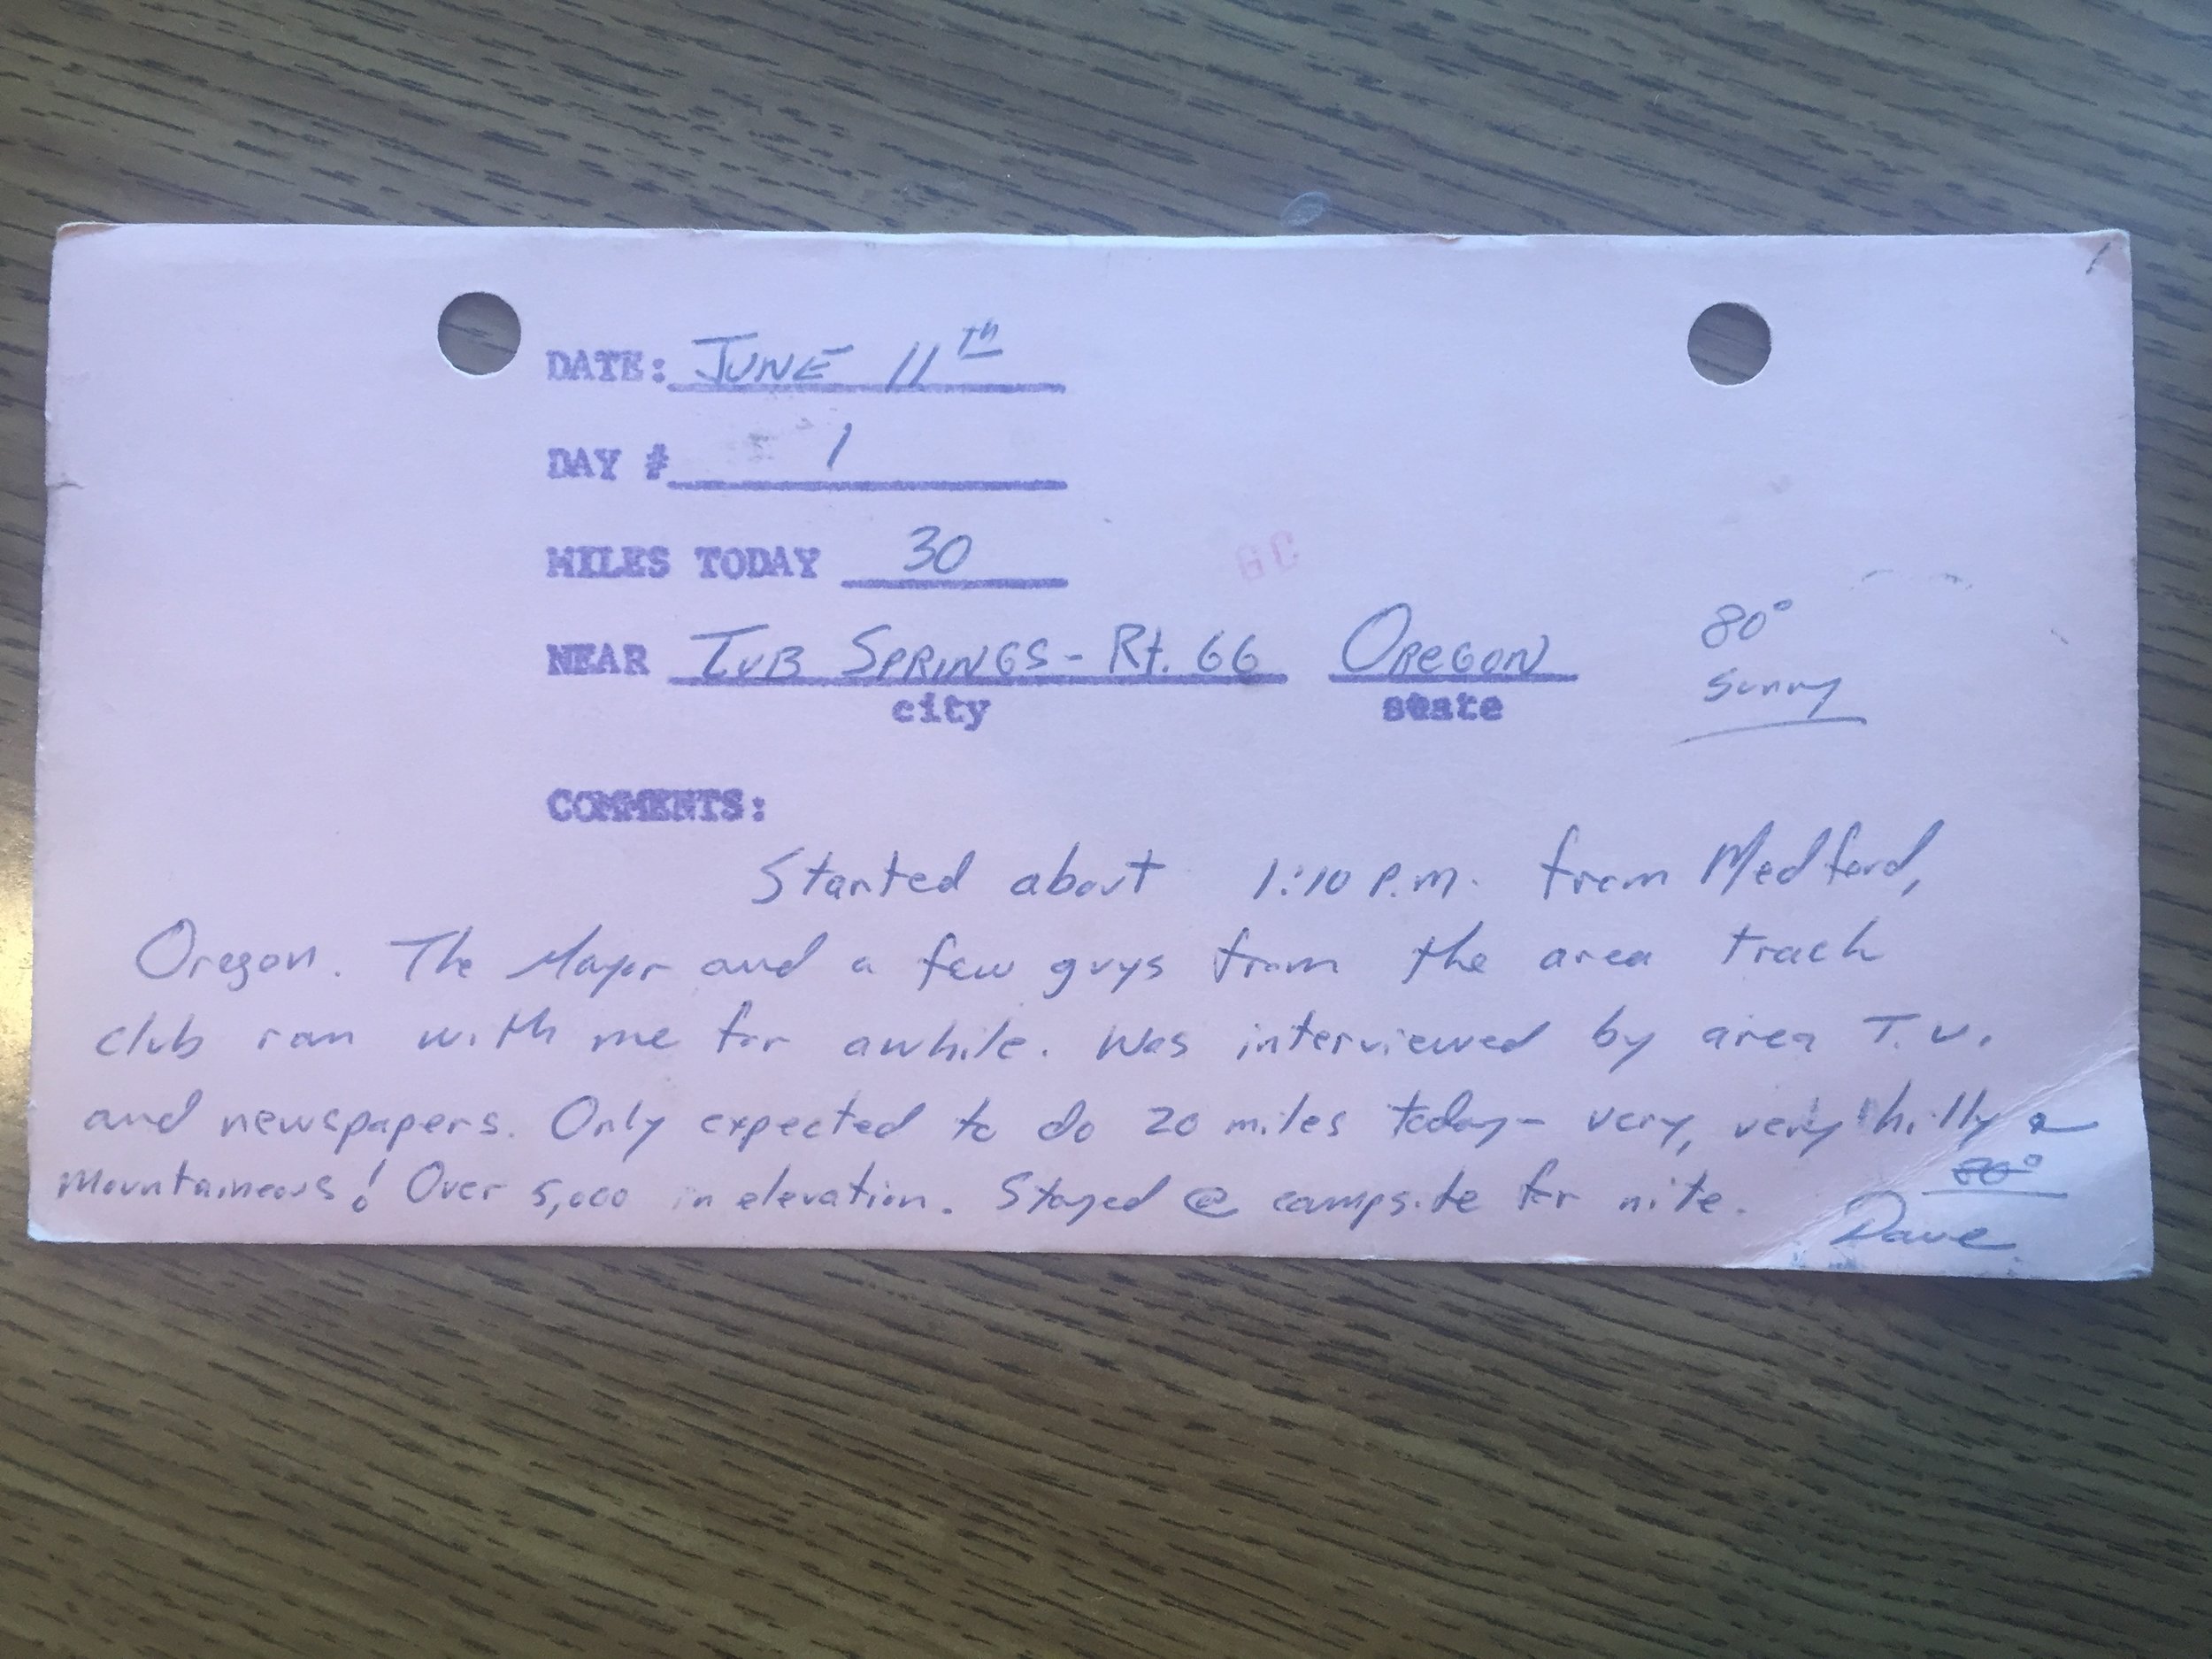 1
DATE: JUNE 11th
DAY # 1
MILES TODAY 30
GC
NEAR TUB SPRINGS - Rt. 66 OREGON
city state
80°
Sunny
COMMENTS:
Started about 1:10 P.M. from Medford,
Oregon. The Mayor and a few guys from the area track
club ran with me for awhile. Was interviewed by area T.V.
and newspapers. Only expected to do 20 miles today - very, very hilly &
Mountaineous! Over 5,000 in elevation. Stayed @ campsite for nite.
80°
Dave